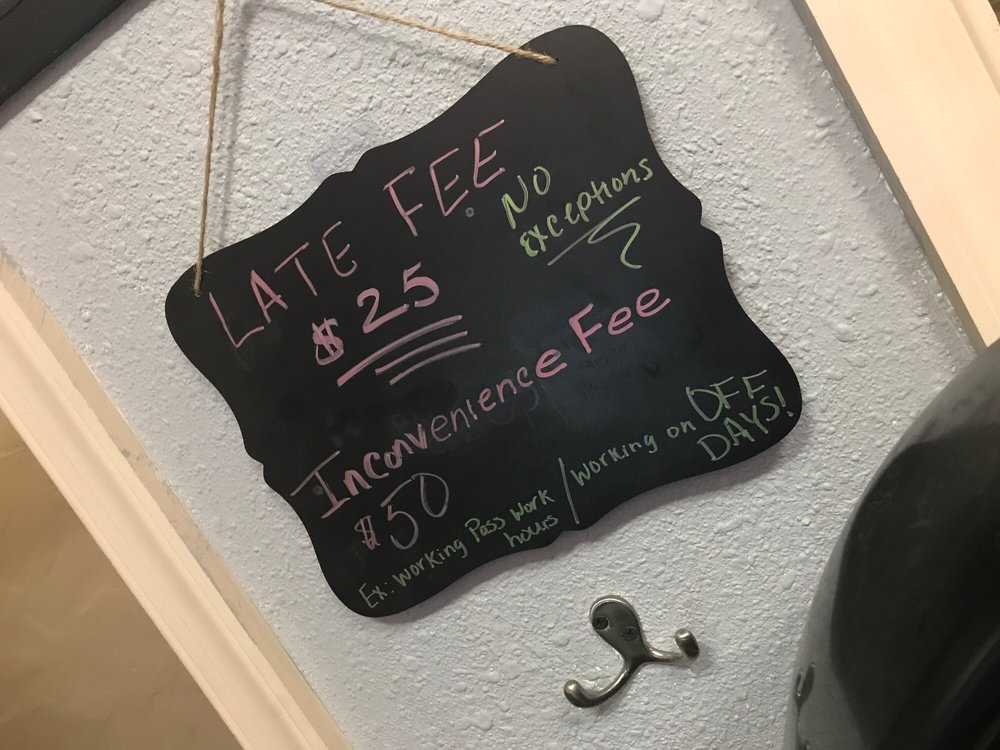 LATE FEE
$25
NO
EXCEPTIONS
Inconvenience Fee
$50
Ex: Working Pass Work
hours / Working on OFF
DAYS!